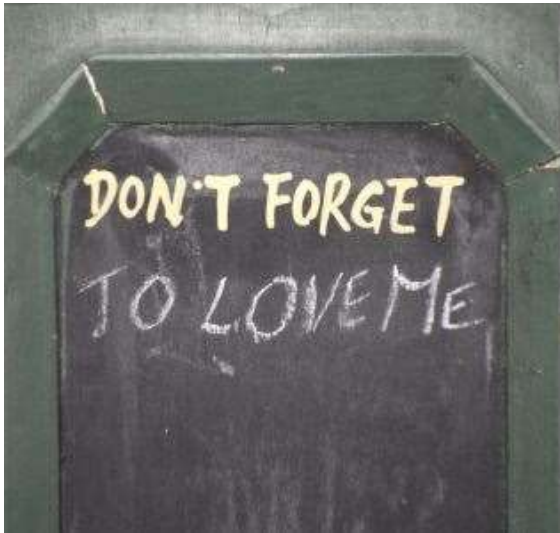 DON'T FORGET
TO LOVE ME